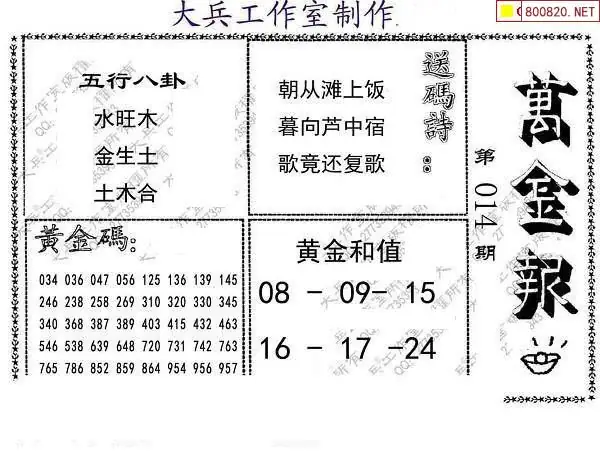 大兵工作室制作
800820.NET
五行八卦
水旺木
金生土
土木合
送碼詩:
朝从滩上饭
暮向芦中宿
歌竟还复歌
萬金報
第014期
黃金碼:
034 036 047 056 125 136 139 145
246 238 258 269 310 320 330 345
340 368 387 389 403 415 432 463
546 538 639 648 720 731 742 763
765 786 852 859 864 954 956 957
黄金和值
08 - 09- 15
16 - 17 -24